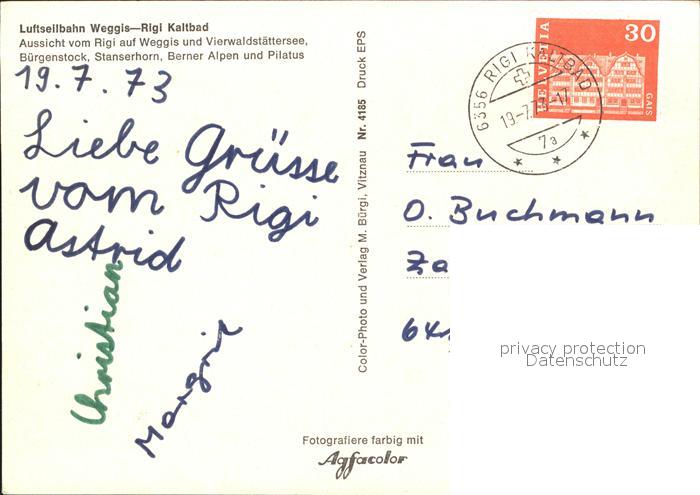 Luftseilbahn Weggis—Rigi Kaltbad
Aussicht vom Rigi auf Weggis und Vierwaldstättersee,
Bürgenstock, Stanserhorn, Berner Alpen und Pilatus
19.7.73
Liebe Grüsse
vom Rigi
Astrid
Christian
Margrit
Color-Photo und Verlag M. Bürgi, Vitznau Nr. 4185 Druck EPS
Fotografiere farbig mit
Agfacolor
HELVETIA
30
GAIS
6356 RIGI KALTBAD
7a
Frau
O. Buchmann
Za
privacy protection
Datenschutz